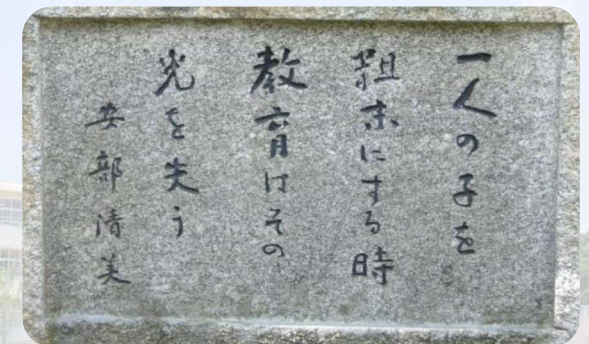 一人の子を
粗末にする時
教育はその
光を失う
安部清美